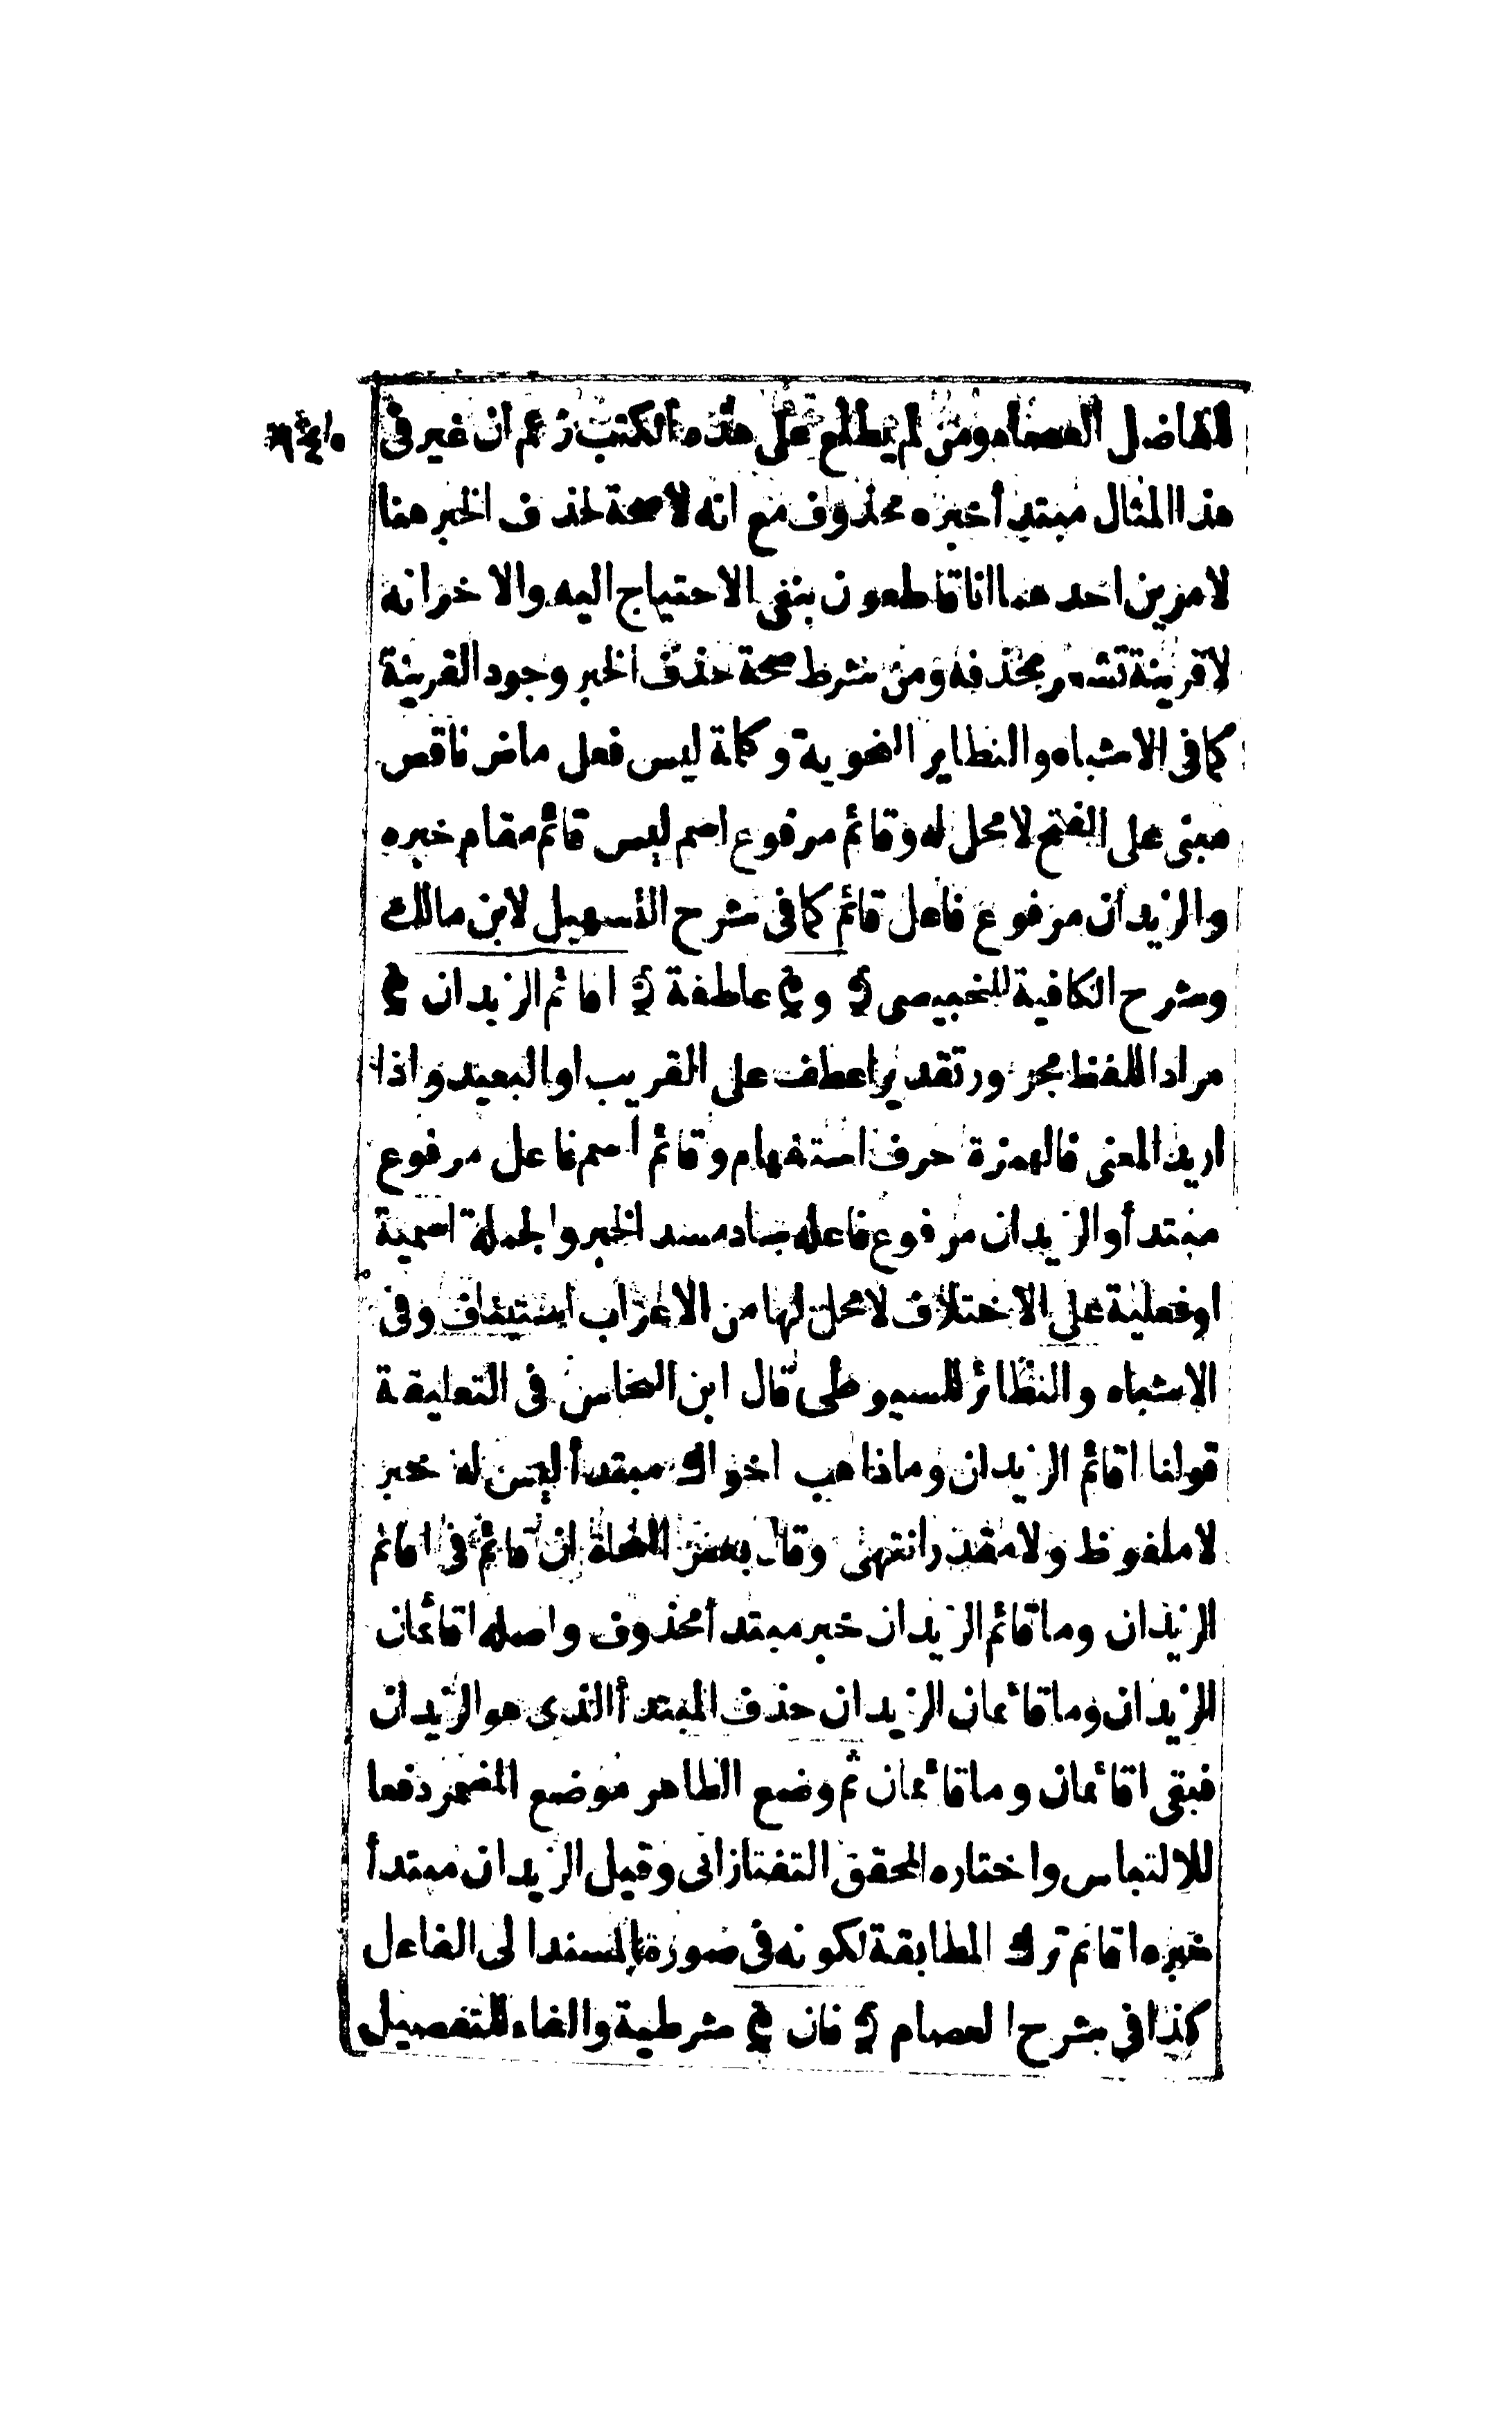 للفاضل العصام ومن لم يطلع على هذه الكتب زعم ان غير فى
هذا المثال مبتدأ خبره محذوف مع انه لا صحة لحذف الخبر هنا
لامرين احدهما انا قاطعون بنفى الاحتياج اليه والاخر انه
لا قرينة تشعر بحذفه ومن شرط صحة حذف الخبر وجود القرينة
كما فى الاشباه والنظاير النحوية وكلمة ليس فعل ماض ناقص
مبنى على الفتح لا محل له وقائم مرفوع اسم ليس قائم مقام خبره
والزيدان مرفوع فاعل قائم كما فى شرح التسهيل لابن مالك
وشرح الكافية للخبيصى ﴿ و ﴾ عاطفة ﴿ اقائم الزيدان ﴾
مراد اللفظ مجرور تقديرا عطف على القريب او البعيد واذا
اريد المعنى فالهمزة حرف استفهام وقائم اسم فاعل مرفوع
مبتدأ والزيدان مرفوع فاعله ساد مسد الخبر والجملة اسمية
او فعلية على الاختلاف لا محل لها من الاعراب استيناف وفى
الاشباه والنظائر للسيوطى قال ابن النحاس فى التعليقة
قولنا اقائم الزيدان وما ذاهب اخواك مبتدأ ليس له خبر
لا ملفوظ ولا مقدر انتهى وقال بعض النحاة ان قائم فى اقائم
الزيدان وما قائم الزيدان خبر مبتدأ محذوف واصله اقائمان
الزيدان وما قائمان الزيدان حذف المبتدأ الذى هو الزيدان
فبقى اقائمان وما قائمان ثم وضع الظاهر موضع المضمر دفعا
للالتباس واختاره المحقق التفتازانى وقيل الزيدان مبتدأ
خبره اقائم ترك المطابقة لكونه فى صورة المسند الى الفاعل
كذا فى شرح العصام ﴿ فان ﴾ شرطية والفاء للتفصيل